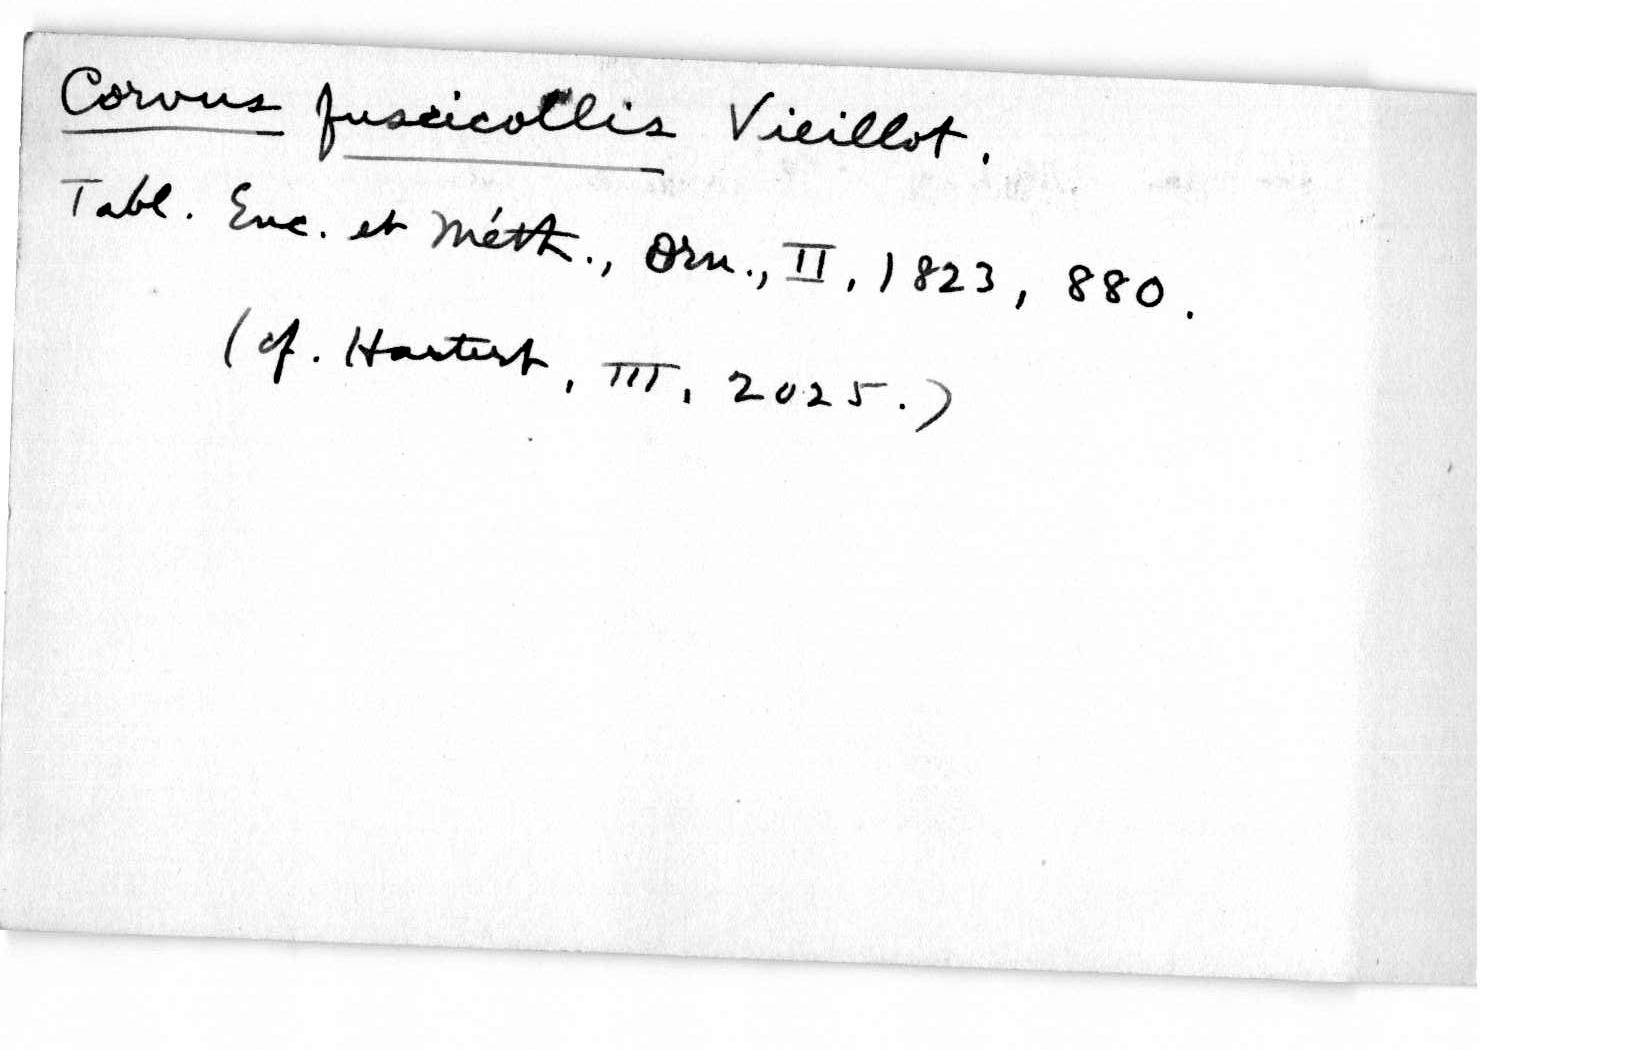 Corvus fuscicollis Vieillot.
Tabl. Enc. et Méth., Orn., II, 1823, 880.
(cf. Hartert, III, 2025.)